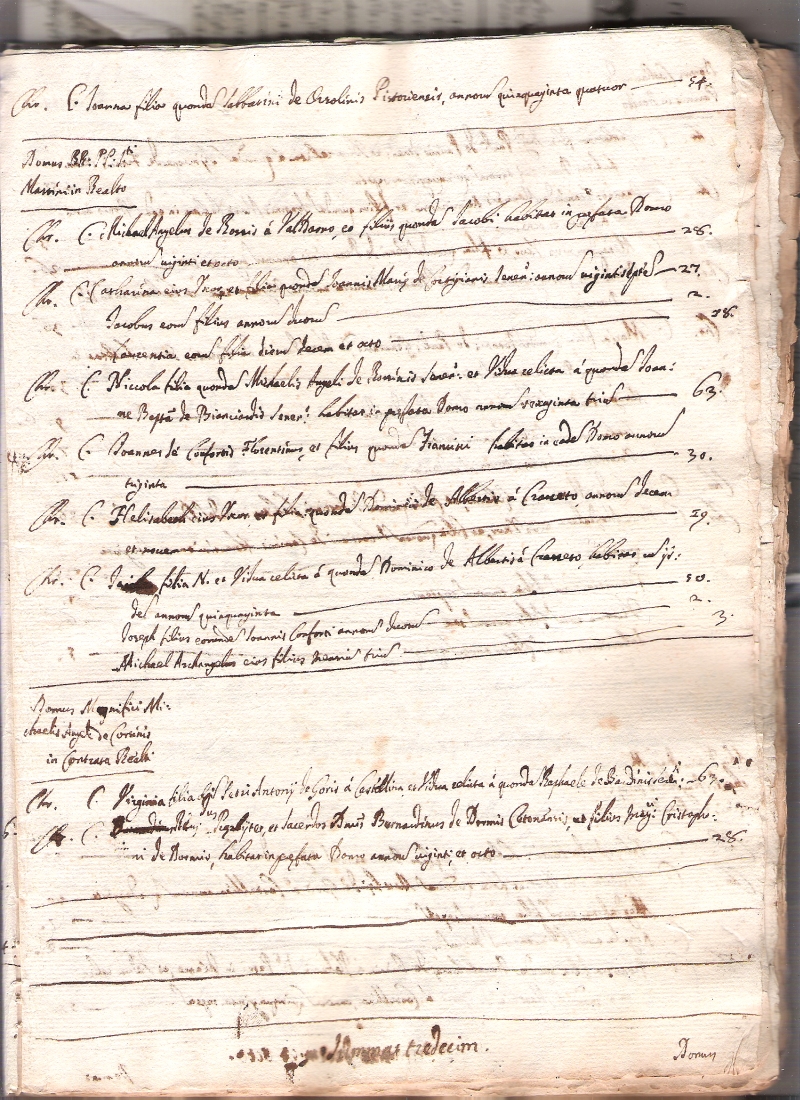 Chr. C. Joanna filia quondā Sabbatini de Pistoriensis, annorū quinquaginta quatuor 54.
Domus RR: PP: Sti
Martini in Realto
Chr. C. Michael Angelus de Rossis á ValdArno, et filius quondā Jacobi habitas in pefata Domo
annorū viginti et octo 28.
Chr. C. Catharina eius Uxor, et filia quondā Joannis Mariæ de Senen: annorū viginti septē 27.
Jacobus eorū filius annorū duorū 2.
Laurentia eorū filia dierū decem et octo 18.
Chr. C. Niccola filia quondā Michaelis Angeli de Rominis Senen: et Vidua relicta á quondā Joan:
ne Bapta de Bianciardis Senen: habitas in pefata Domo annorū sexaginta triū 63.
Chr. C. Joannes de Confortis Florentinus, et filius quondā Francisci habitas in eadē Domo annorū
triginta 30.
Chr. C. Helisabeth eius Uxor et filia quondā Dominici de Albertis á Cerreto annorū decem
et novem 19.
Chr. C. filia N. et Vidua relicta á quondā Dominico de Albertis á Cerreto, habitas in ijs:
dē annorū quinquaginta 50.
Joseph filius eorundē Joannis Conforti annorū duorū 2.
Michael Archangelus eius filius mensiū triū 3.
Domus Magnifici Mi:
chaelis Angeli de Corsinis
in Contrata Realti
Chr. C. Virginia filia Petri Antonij de Goris á Castellina et Vidua relicta á quondā Raphaele de Bandinis 63.
Chr. C. et Sacerdos Dnus Bernardinus de Dormis Cotonensis, et filius Mag: Cristoph:
ni de Dormis, habitas in pefata Domo annorū viginti et octo 28.
Summa: tredecim.
Domus